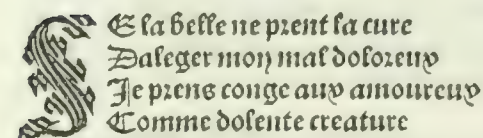 SE la belle ne prent la cure
Daleger mon mal doloreux
Je prens conge aux amoureux
Comme dolente creature